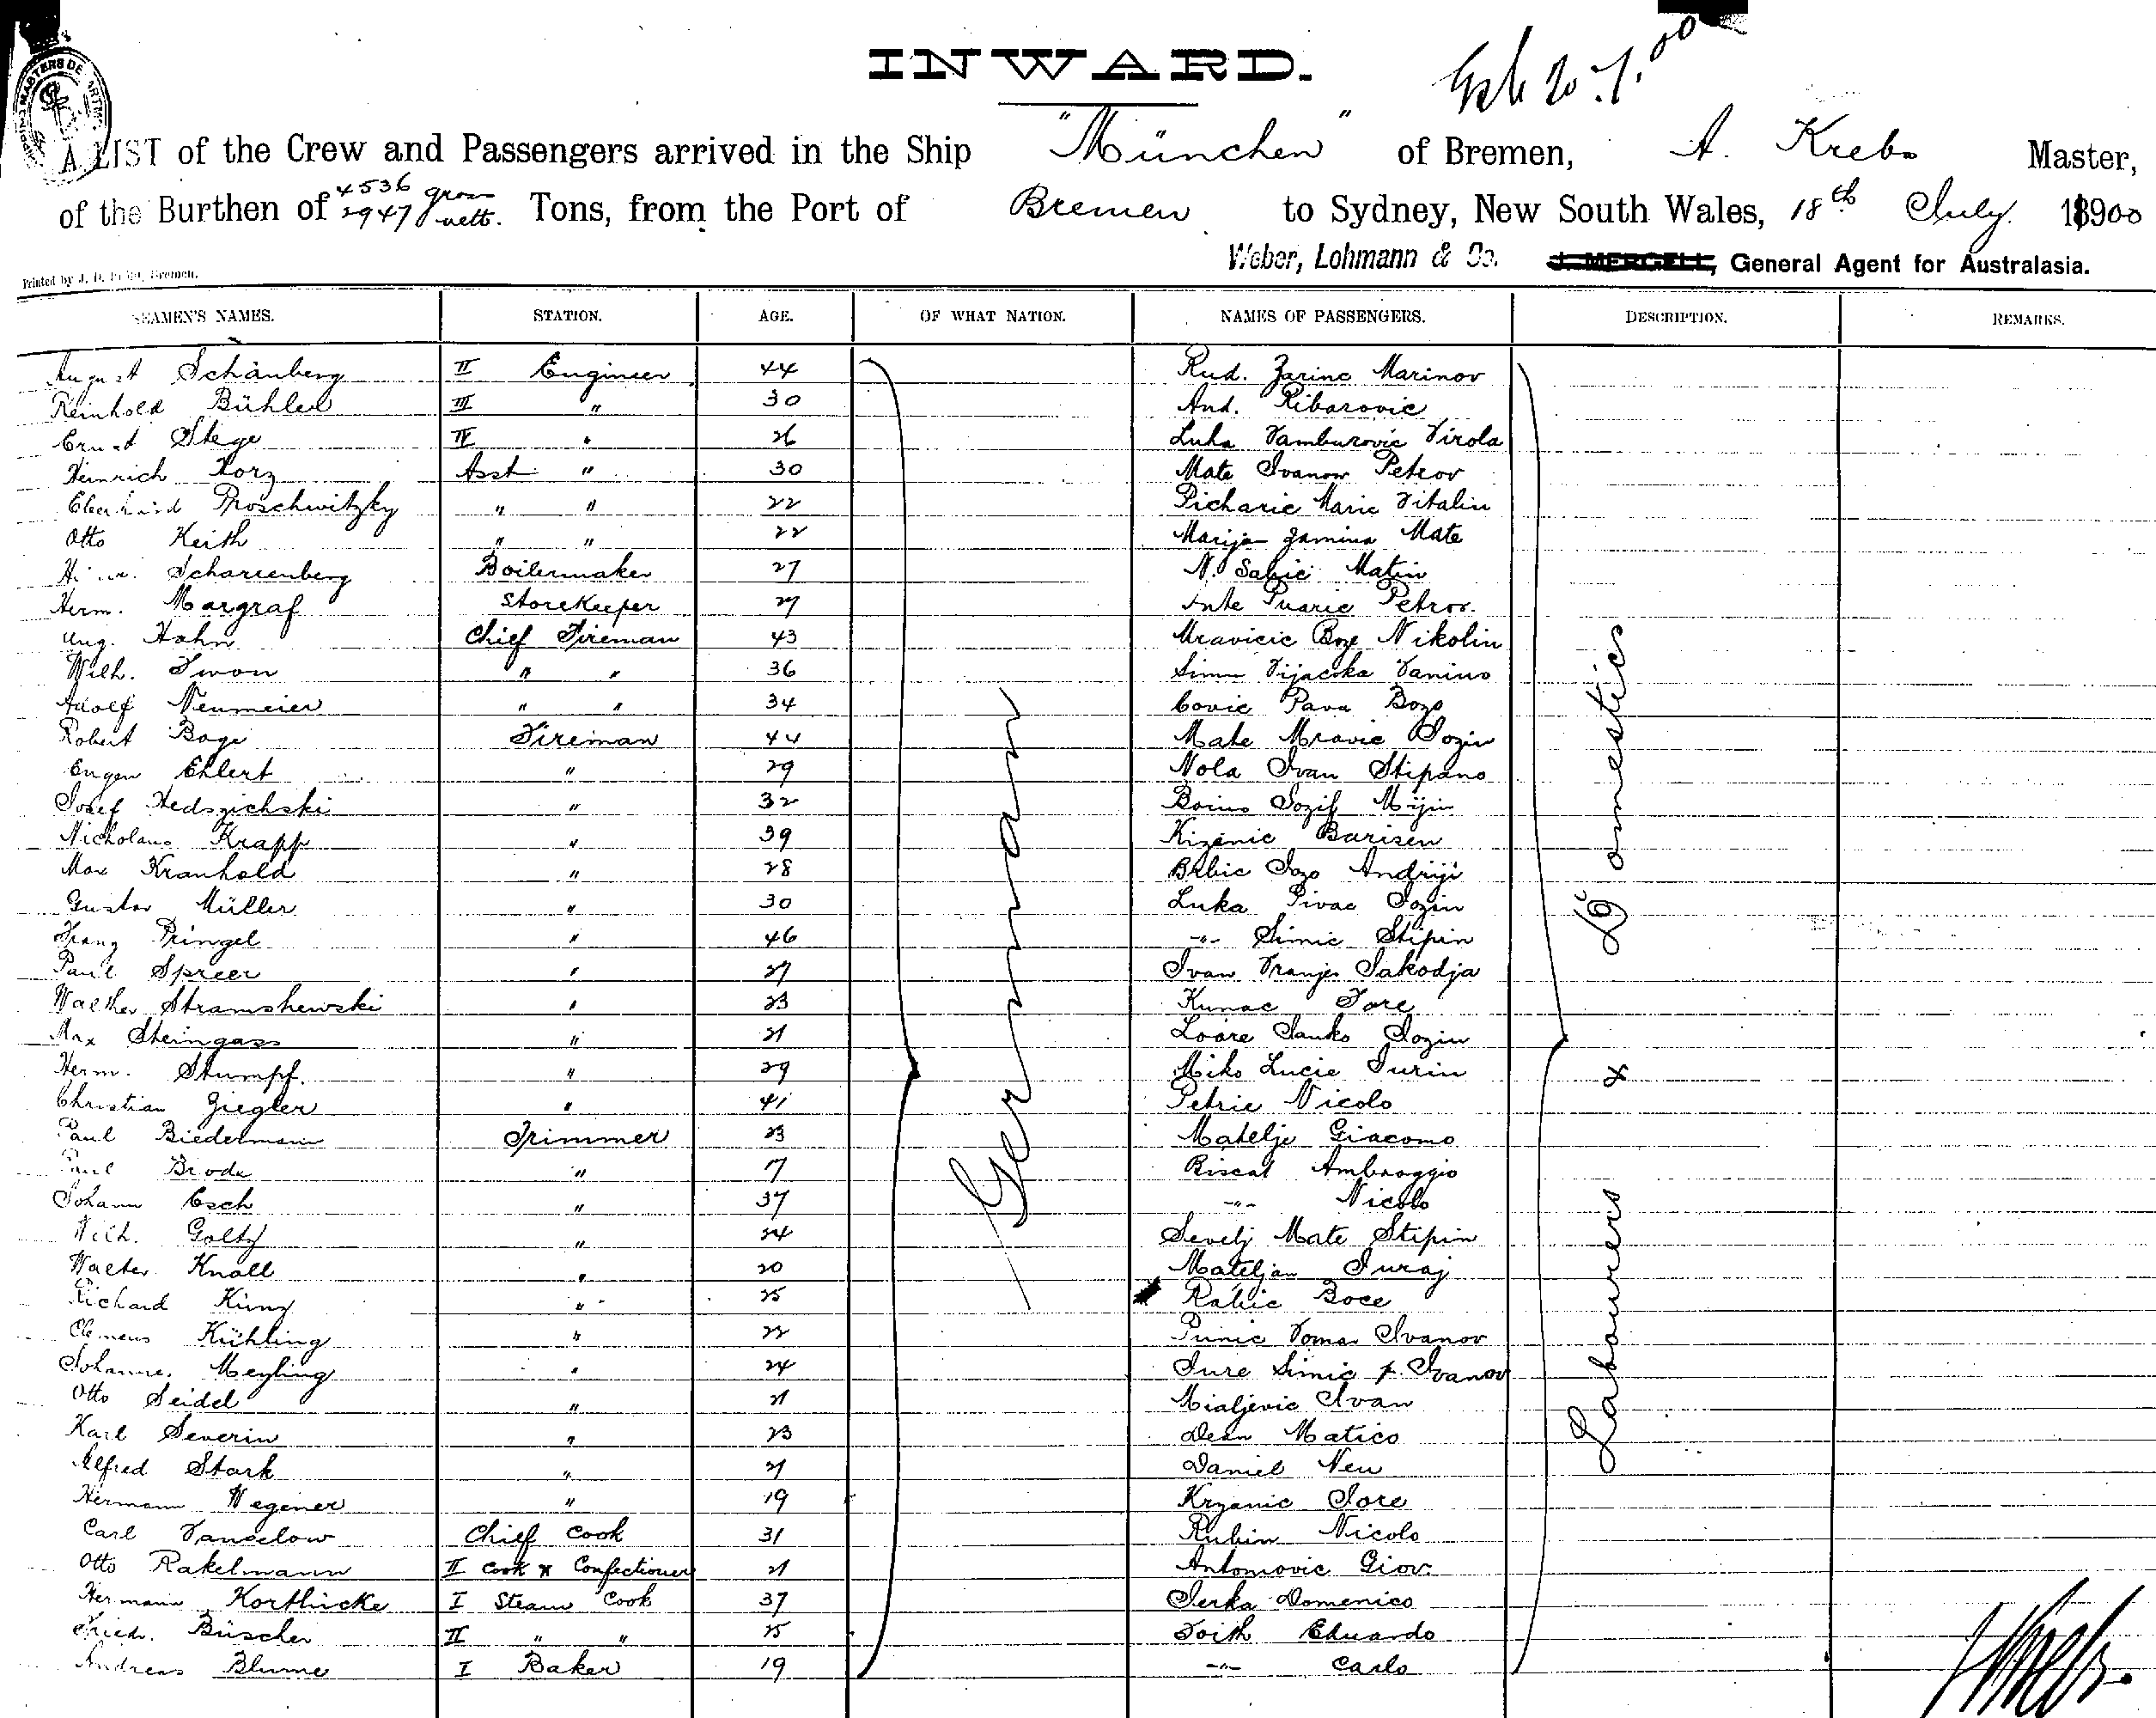 INWARD.
A LIST of the Crew and Passengers arrived in the Ship "München" of Bremen, A. Krebs Master,
of the Burthen of 4536 gross 2947 nett. Tons, from the Port of Bremen to Sydney, New South Wales, 18th July 1900
Weber, Lohmann & Co. J. MERGELL, General Agent for Australasia.
SEAMEN'S NAMES. STATION. AGE. OF WHAT NATION. NAMES OF PASSENGERS. DESCRIPTION. REMARKS.
German
Domestics & Labourers
August Schönberg II Engineer 44 Rud. Zarinc Marinov
Reinhold Bühler III " 30 And. Ribarovic
Ernst Stege IV " 26 Luka Tamburovic Virola
Heinrich Korz Asst " 30 Mate Ivanow Petrov
Eberhard Proschwitzky " " 22 Picharic Maric Vitalin
Otto Keith " " 22 Marija Jamina Mate
Scharrenberg Boilermaker 27 N. Sabic Matin
Herm. Margraf Storekeeper 27 Ante Puaric Petrov.
Aug. Hahn Chief Fireman 43 Mravicic Boze Nikolin
Wilh. Iwon " " 36 Simun Vijacka Vanino
Adolf Neumeier " " 34 Covic Pava Bozo
Robert Boge Fireman 44 Mate Mravic Jozin
Eugen Ehlert " 29 Nola Ivan Stipano
Josef Hedszichski " 32 Jozif Mijin
Nicholaus Krapp " 39 Kizanic Barisen
Max Kranhold " 28 Brbic Jozo Andriji
Gustav Müller " 30 Luka Pivac Jozin
Franz Pringel " 46 -"- Simic Stipin
Paul Spreer " 27 Ivan Vranjes Jakodja
Walther Stramshewski " 23 Kunac Jore
Max Steingass " 21 Loore Janko Jozin
Herm. Stumpf. " 29 Miko Lucic Jurin
Christian Ziegler " 41 Petric Nicolo
Paul Biedermann Trimmer 23 Matelje Giacomo
Paul Brode " 7 Riscat Ambroggio
Johann Esch " 37 -"- Nicolo
Wilh. Goltz " 24 Sevelj Mate Stipin
Walter Knall " 20 Mateljan Juraj
Richard Kunz " 25 Rabic Boce
Clemens Kühling " 22 Punic Toma Ivanov
Johannes Meyling " 24 Jure Simic p. Ivanov
Otto Seidel " 21 Mialjevic Ivan
Karl Severin " 23 Dean Matico
Alfred Stark " 21 Daniel Neu
Hermann Wegener " 19 Krzanic Jore
Carl Vanselow Chief Cook 31 Rubin Nicolo
Otto Rakelmann II Cook & Confectioner 21 Antomovic Giov.
Hermann Korthicke I Steam Cook 37 Jerka Domenico
Friedr. Büscher II " " 25 Toith Eduardo
Andreas Blume I Baker 19 -"- Carlo